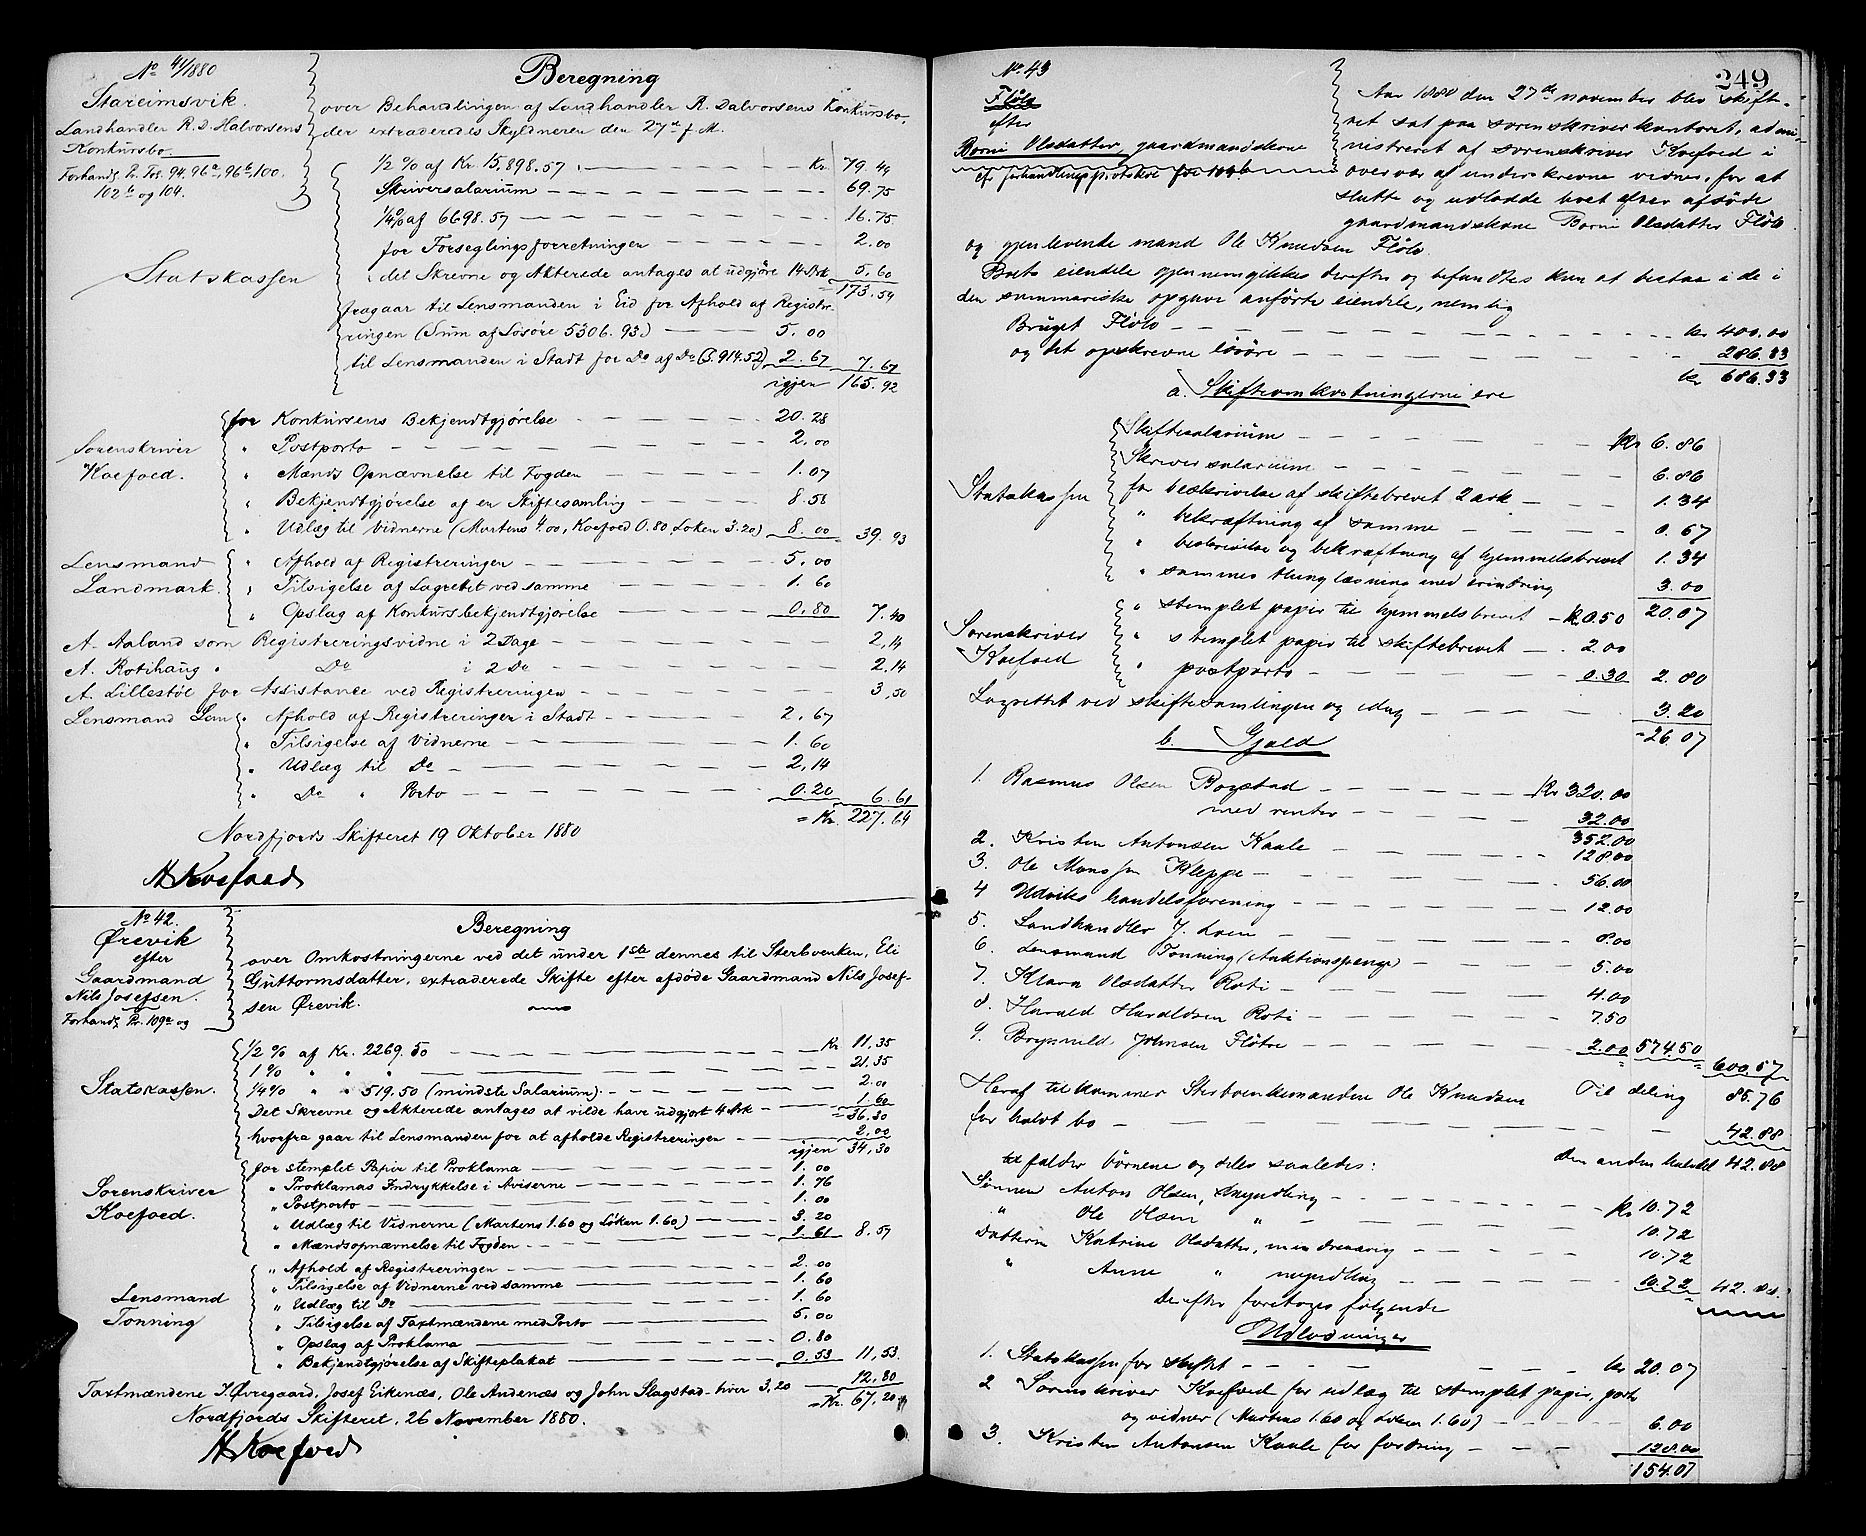 No 41/1880
Stareimsvik.
Landhandler R. D. Halvorsens
Konkursbo.
Forhandl. Pr. Fol. 94, 96a, 96b, 100,
102b og 104.
Beregning
over Behandlingen af Landhandler R. Dalvorsens Konkursbo,
der extraderedes Skyldneren den 27de f. M.
Statskassen
1/2 % af Kr. 15,898.57 Kr. 79.49
Skriversalarium 69.75
1/4% af 6698.57 16.75
for Forseglingsforretningen 2.00
det Skrevne og Akterede antages at udgjöre 14 Ark 5.60
= 173.59
fragaar til Lensmanden i Eid for Afhold af Registre-
ringen (Sum af Lösöre 5306.93.) 5.00
til Lensmanden i Stadt for Do af Do (S. 914.52) 2.67 7.67
igjen 165.92
Sorenskriver
Koefoed.
for Konkursens Bekjendtgjørelse 20.28
" Postporto 2.00
" Mænds Opnævnelse til Fogden 1.07
" Bekjendtgjørelse af en Skiftesamling 8.58
" Udlæg til Vidnerne (Martens 4.00, Koefoed 0.80, Loken 3.20) 8.00 39.93
Lensmand
Landmark.
" Afhold af Registreringen 5.00
" Tilsigelse af Lagretet ved samme 1.60
" Opslag af Konkursbekjendtgjørelse 0.80 7.40
A. Aaland som Registreringsvidne i 2 Dage 2,14
A. Rotihaug " Do i 2 Do 2.14
A. Lillestöl for Assistance ved Registreringen 3,50
Lensmand Len " Afhold af Registreringen i Stadt 2.67
" Tilsigelse af Vidnerne 1.60
" Udlæg til Do 2,14
" Do " Porto 0.20 6.61
= Kr. 227.64
Nordfjords Skifteret 19 Oktober 1880
A Koefoed
No 42.
Ørevik
efter
Gaardmand
Nils Josefsen.
Forhandl. Pr. 109a og
Beregning
over Omkostningerne ved det under 1ste dennes til Sterbvenken, Eli
Guttormsdatter, extraderede Skifte efter afdöde Gaardmand Nils Josef-
sen Ørevik.
Statskassen.
1/2 % af Kr. 2269.50 Kr 11,35
1 % " " " 21.35
1/4 % " " 519.50 (mindste Salarium) 2.00
Det Skrevne og Akterede antages at vilde have udgjort 4 Ark 1.60
= 36.30
hvorfra gaar til Lensmanden for at afholde Registreringen 2,00
igjen 34,30
Sorenskriver
Koefoed.
for stemplet Papir til Proklama 1.00
" Proklamas Indrykkelse i Aviserne 1.76
" Postporto 1.00
" Udlæg til Vidnerne (Martens 1.60 og Löken 1.60) 3.20
" Mændsopnævnelse til Fogden 1.61 8.57
Lensmand
Tonning
" Afhold af Registreringen 2.00
" Tilsigelse af Vidnerne ved samme 1.60
" Udlæg til Do 1.60
" Tilsigelse af Taxtmændene med Porto 5.00
" Opslag af Proklama 0.80
" Bekjendtgjørelse af Skifteplakat 0.53 11,53
Taxtmændene J. Øvregaard, Josef Eikenæs, Ole Andenæs og John Slagstad - hver 3,20 12,80
= Kr. 67,20
Nordfjords Skifteret, 26 November 1880.
A Koefoed
249
No 43
Flölo
efter
Borni Olsdatter, gaardmandskone
cfr forhandlingsprotokol fol 109b
Aar 1880 den 27de november blev skifte-
ret sat paa sorenskriverkontoret, admi-
nistreret af sorenskriver Koefoed i
overvær af underskrevne vidner, for at
slutte og udlodde boet efter afdöde
gaardmandskone Borni Olsdatter Flölo
og gjenlevende mand Ole Knudsen Flölo.
Boets eiendele gjennemgikkes derefter og befandtes kun at bestaa i de i
den summariske opgave anförte eiendele, nemlig
Bruget Flölo kr 400.00
og det opskrevne lösöre 286.33
kr 686.33
a. Skifteomkostningerne ere
Statskassen
Skiftesalarium Kr 6.86
Skriversalarium 6.86
for beskrivelse af skiftebrevet 2 ark 1.34
" bekræftning af samme 0.67
" beskrivelse og bekræftning af hjemmelsbrevet 1.34
" sammes thinglæsning med erindring 3.00
20.07
Sorenskriver
Koefoed
" stemplet papir til hjemmelsbrevet Kr. 0.50
" stemplet papir til skiftebrevet 2.00
" postporto 0.30 2.80
Lagrettet ved skiftesamlingen og idag 3.20
= 26.07
b. Gjæld
1. Rasmus Olsen Bogstad Kr 320.00
med renter 32.00
352.00
2. Kristen Antonsen Kaale 128.00
3. Ole Monssen Kleppe 56.00
4 Udviks handelsforening 12.00
5. Landhandler J. Loen 8.00
6. Lensmand Tonning (Auktionspenge) 5.00
7. Klara Olsdatter Roti 4.00
8. Harald Haraldsen Roti 7.50
9. Brynnild Johnsen Flötre 2.00 574.50
600.57
Til deling 85.76
Heraf tilkommer Sterboenkemanden Ole Knudsen
for halvt bo 42.88
Den anden halvdel 42.88
tilfalder börnene og deles saaledes:
Sönnen Anton Olsen, myndling kr 10.72
" Ole Olsen " 10.72
Datteren Katrine Olsdatter, mindreaarig 10.72
" Anne " myndling 10.72 42.88.
Derefter foretoges fölgende
Udlodninger
1. Statskassen for skiftet kr 20.07
2 Sorenskriver Koefoed for udlæg til stemplet papir, porto
og vidner (Martens 1.60 og Loken 1.60) 6.00
3. Kristen Antonsen Kaale for fordring 128.00
154.07